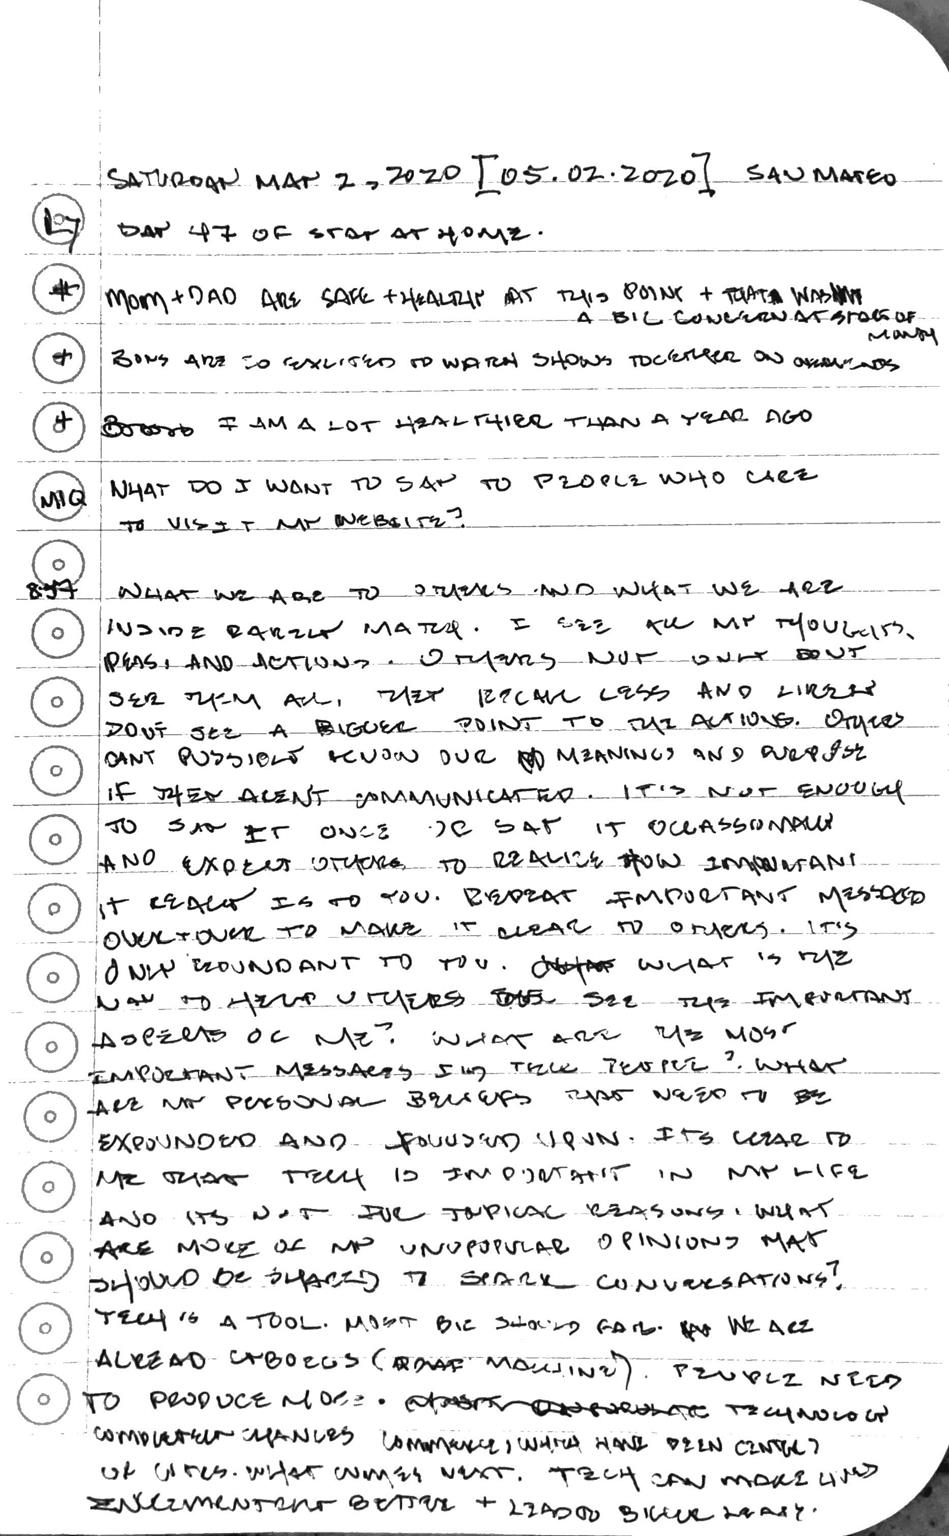 SATURDAY MAY 2, 2020 [05.02.2020] SAN MATEO
DAY 47 OF STAY AT HOME.
MOM + DAD ARE SAFE + HEALTHY AT THIS POINT + THAT WAS
A BIG CONCERN AT START OF
MONTH
+ BOYS ARE SO EXCITED TO WATCH SHOWS TOGETHER ON WEEKENDS
+ I AM A LOT HEALTHIER THAN A YEAR AGO
MIQ WHAT DO I WANT TO SAY TO PEOPLE WHO CARE
TO VISIT MY WEBSITE?
8:57 WHAT WE ARE TO OTHERS AND WHAT WE ARE
INSIDE RARELY MATCH. I SEE ALL MY THOUGHTS,
IDEAS, AND ACTIONS. OTHERS NOT ONLY DONT
SEE THEM ALL, THEY RECALL LESS AND LIKELY
DONT SEE A BIGGER POINT TO THE ACTIONS. OTHERS
CANT POSSIBLY KNOW OUR MEANINGS AND PURPOSE
IF THEY ARENT COMMUNICATED. IT'S NOT ENOUGH
TO SAY IT ONCE OR SAY IT OCCASSIONALLY
AND EXPECT OTHERS TO REALIZE HOW IMPORTANT
IT REALLY IS TO YOU. REPEAT IMPORTANT MESSAGES
OVER + OVER TO MAKE IT CLEAR TO OTHERS. IT'S
ONLY REDUNDANT TO YOU. WHAT IS THE
WAY TO HELP OTHERS SEE THE IMPORTANT
ASPECTS OF ME? WHAT ARE THE MOST
IMPORTANT MESSAGES I'D TELL PEOPLE? WHAT
ARE MY PERSONAL BELIEFS THAT NEED TO BE
EXPOUNDED AND FOCUSED UPON. ITS CLEAR TO
ME THAT TECH IS IMPORTANT IN MY LIFE
AND ITS NOT FOR TYPICAL REASONS. WHAT
ARE MORE OF MY UNPOPULAR OPINIONS THAT
SHOULD BE SHARED TO SPARK CONVERSATIONS?
TECH IS A TOOL. MOST BIG SHOULD FAIL. WE ARE
ALREADY CYBORGS ( MACHINE). PEOPLE NEED
TO PRODUCE MORE. TECHNOLOGY
COMPLETELY CHANGES COMMERCE, WHICH HAVE BEEN CENTER
OF CITIES. WHAT COMES NEXT. TECH CAN MAKE LIVES
INCREMENTALLY BETTER + LEAD TO BIGGER LEAPS.